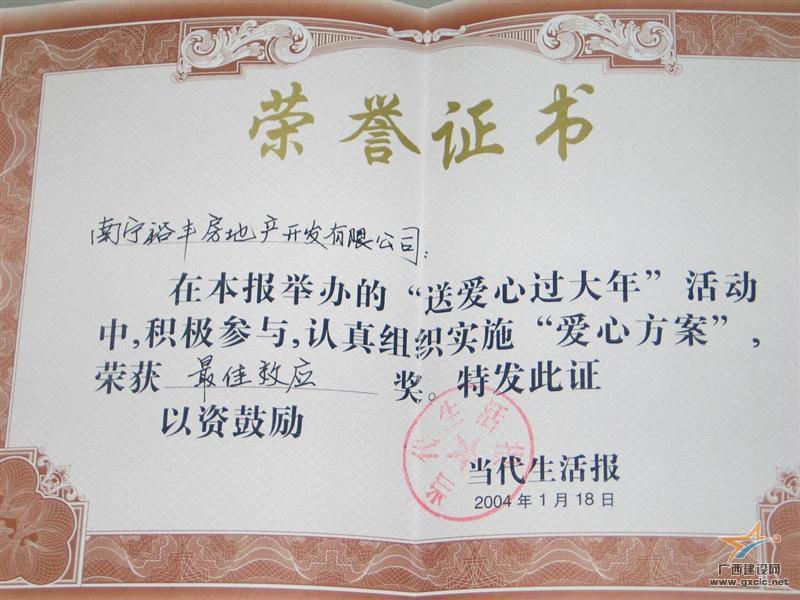 荣誉证书
南宁裕丰房地产开发有限公司:
在本报举办的“送爱心过大年”活动
中,积极参与,认真组织实施“爱心方案”,
荣获 最佳效应 奖。特发此证
以资鼓励
当代生活报
当代生活报
2004年1月18日
广西建设网
www.gxcic.net